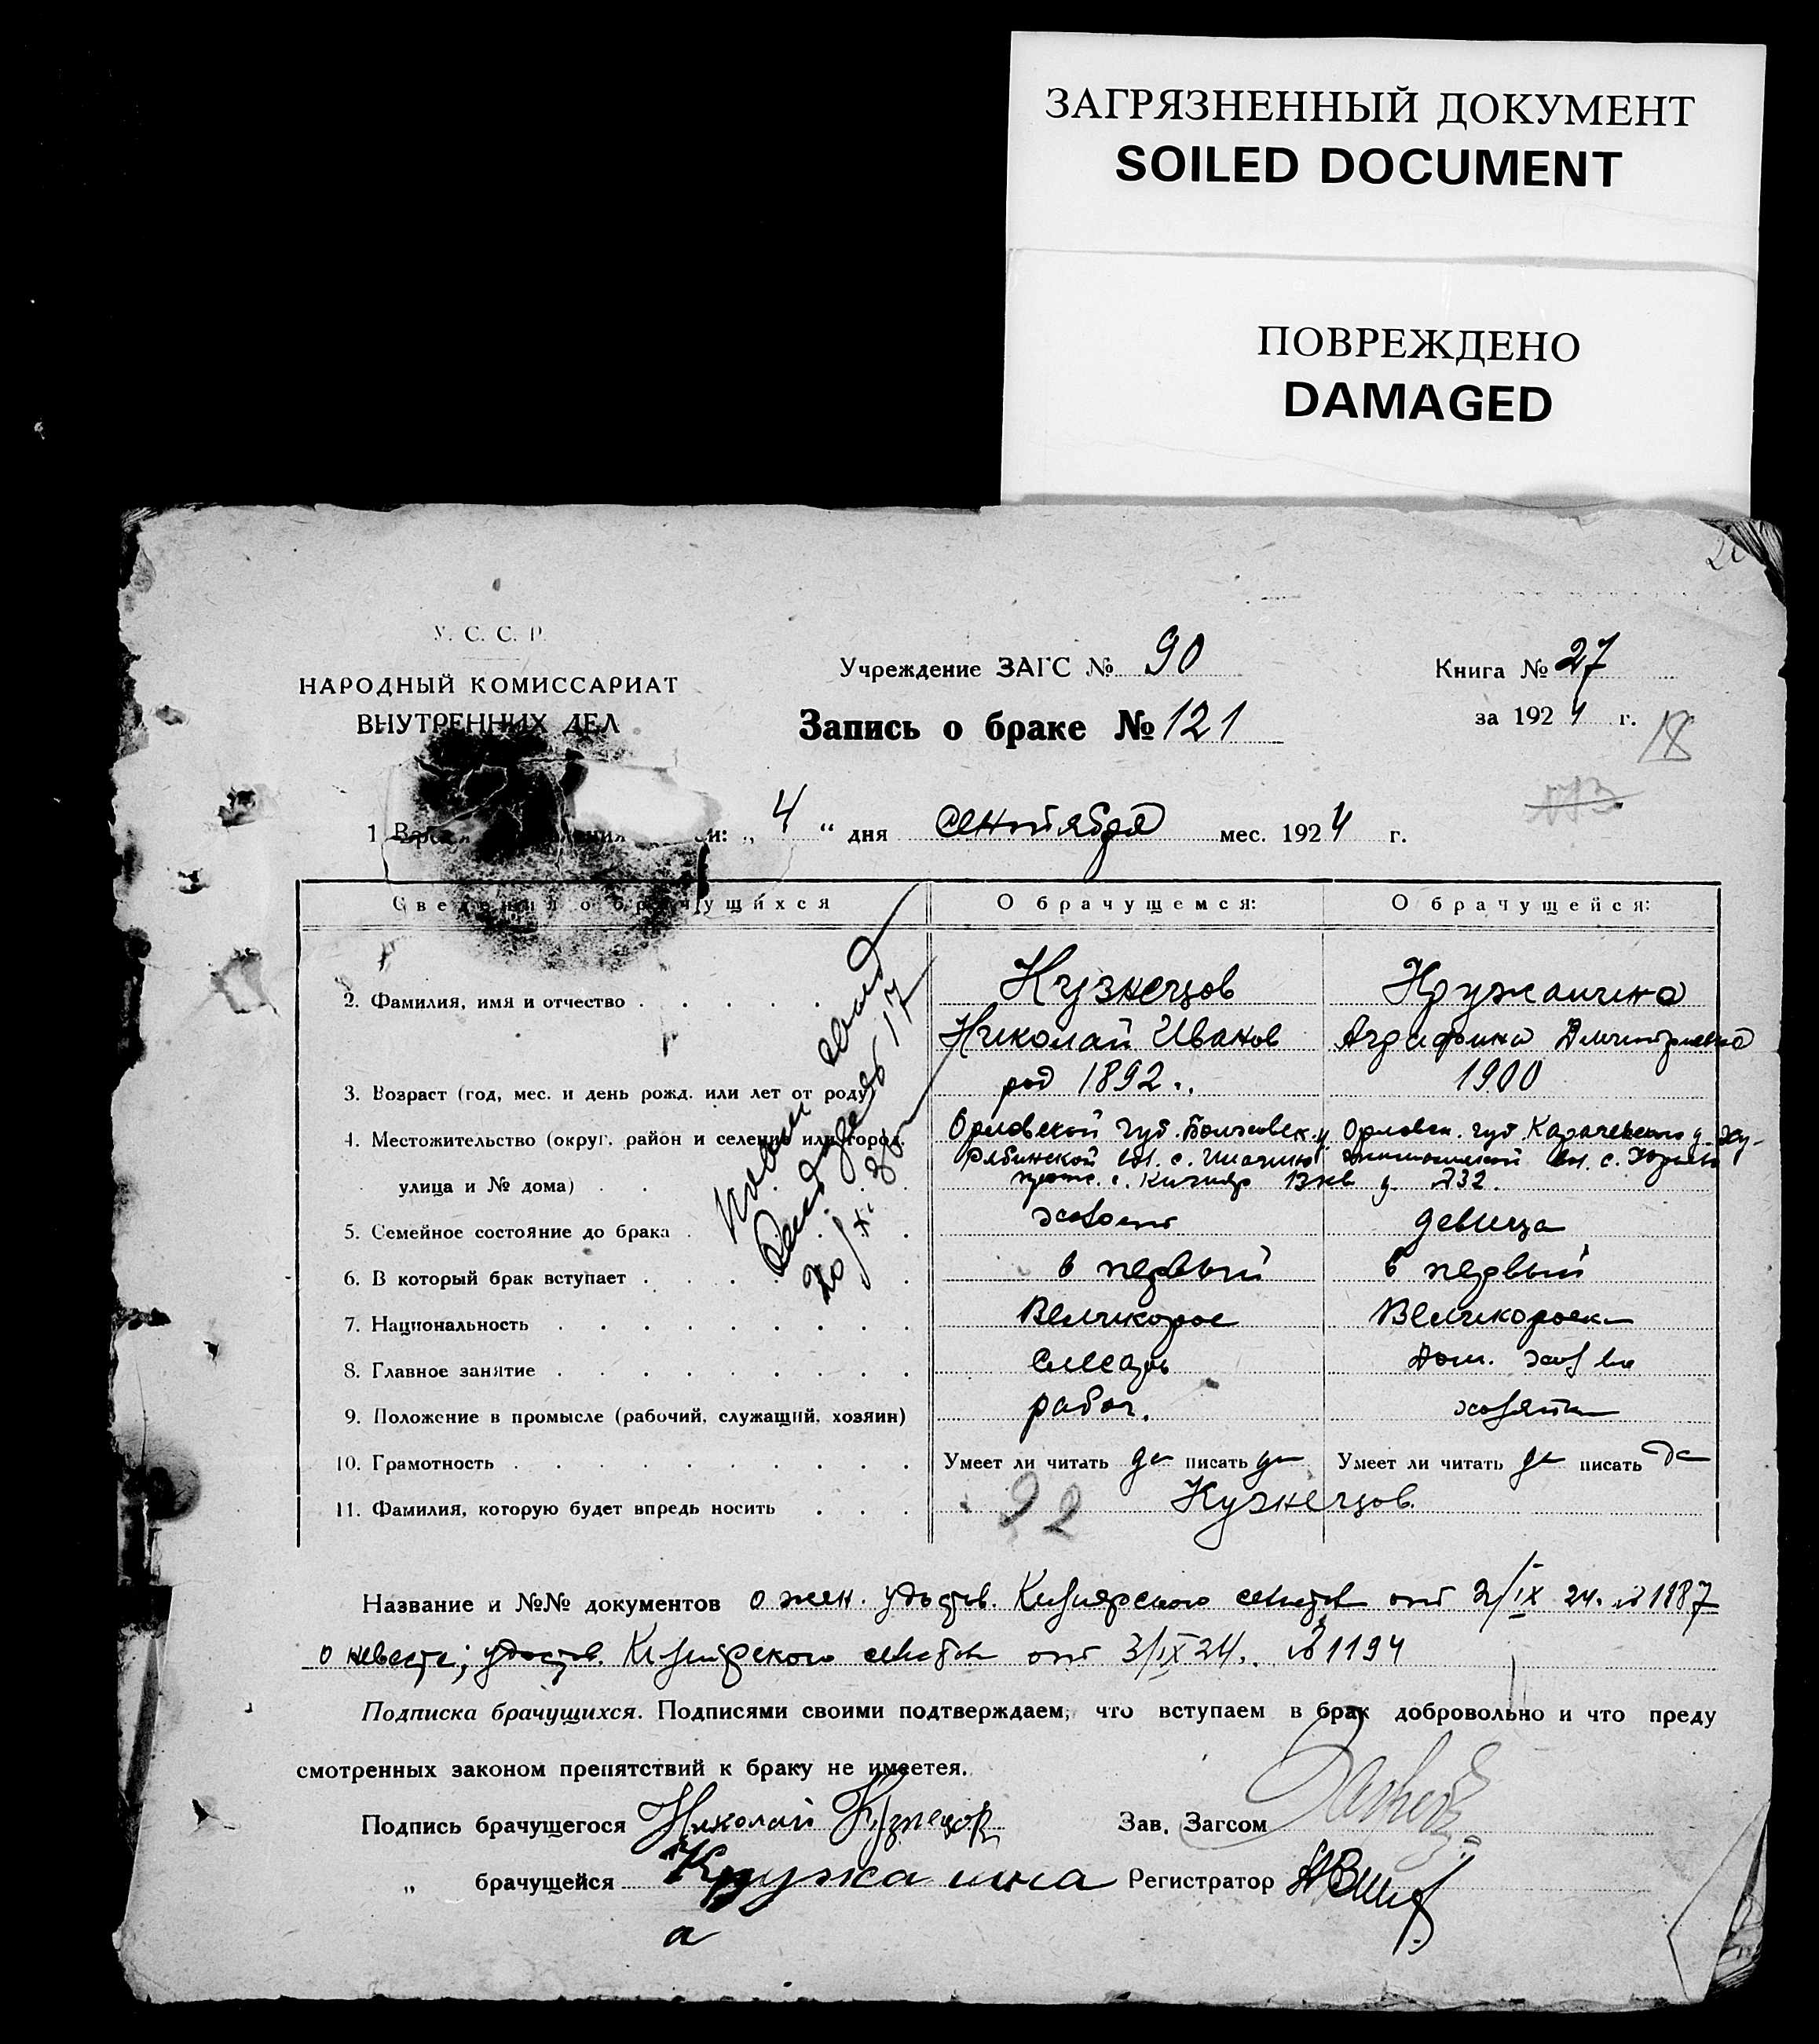 ЗАГРЯЗНЕННЫЙ ДОКУМЕНТ
SOILED DOCUMENT
ПОВРЕЖДЕНО
DAMAGED
У. С. С. Р.
НАРОДНЫЙ КОМИССАРИАТ
ВНУТРЕННИХ ДЕЛ
Учреждение ЗАГС № 90
Книга № 27
Запись о браке № 121
за 1924 г.
18
113
1 „ 4 “ дня сентября мес. 1924 г.
Сведения о брачущихся О брачущемся: О брачущейся:
2. Фамилия, имя и отчество Кузнецов Кружалина
Николай Иванов Аграфина Дмитриевна
3. Возраст (год, мес. и день рожд. или лет от роду) род 1892. 1900
4. Местожительство (округ, район и селение или город, Орловской губ. Болховск. у Орловск. губ. Карачевского у.
улица и № дома)
5. Семейное состояние до брака холост девица
6. В который брак вступает в первый в первый
7. Национальность Великорос Великороск
8. Главное занятие слесарь дом. хоз
9. Положение в промысле (рабочий, служащий, хозяин) рабоч.
10. Грамотность Умеет ли читать да писать да Умеет ли читать да писать да
11. Фамилия, которую будет впредь носить Кузнецов
92
Название и №№ документов о жен. удостов. от 2/IX 24. № 1187
о невесте; удостов. от 3/IX 24. № 1194
Подписка брачущихся. Подписями своими подтверждаем, что вступаем в брак добровольно и что преду
смотренных законом препятствий к браку не имеется.
Подпись брачущегося Николай Кузнецов Зав. Загсом
„ брачущейся Кружалина Регистратор
а